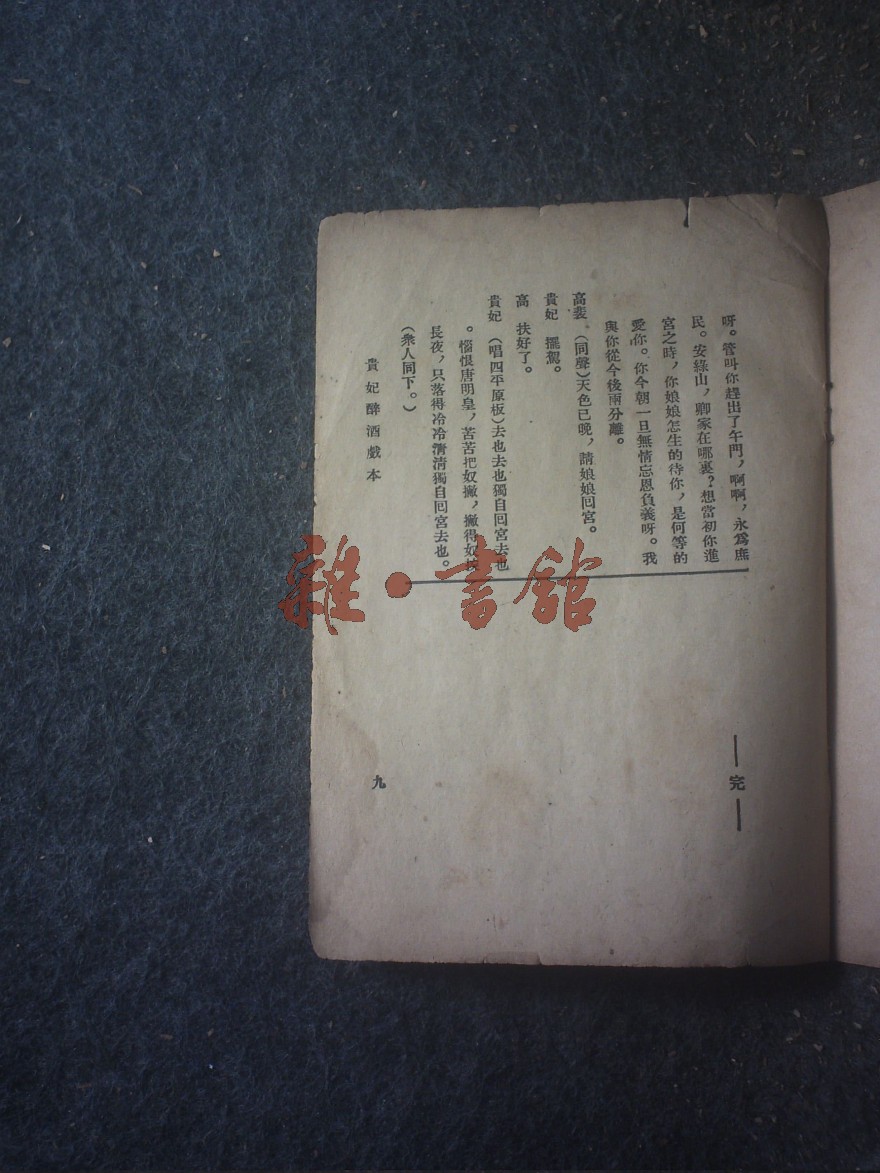 呀。管叫你趕出了午門，啊啊，永爲庶
民。安綠山，卿家在哪裏？想當初你進
宮之時，你娘娘怎生的待你，是何等的
愛你。你今朝一旦無情忘恩負義呀。我
與你從今後兩分離。
高裴　（同聲）天色已晚，請娘娘囘宮。
貴妃　擺駕。
高　扶好了。
貴妃　（唱四平原板）去也去也獨自囘宮去也
。惱恨唐明皇，苦苦把奴撇，撇得奴
長夜，只落得冷冷淸淸獨自囘宮去也。
（衆人同下。）
—完—
貴妃醉酒戲本
九
雜・書館